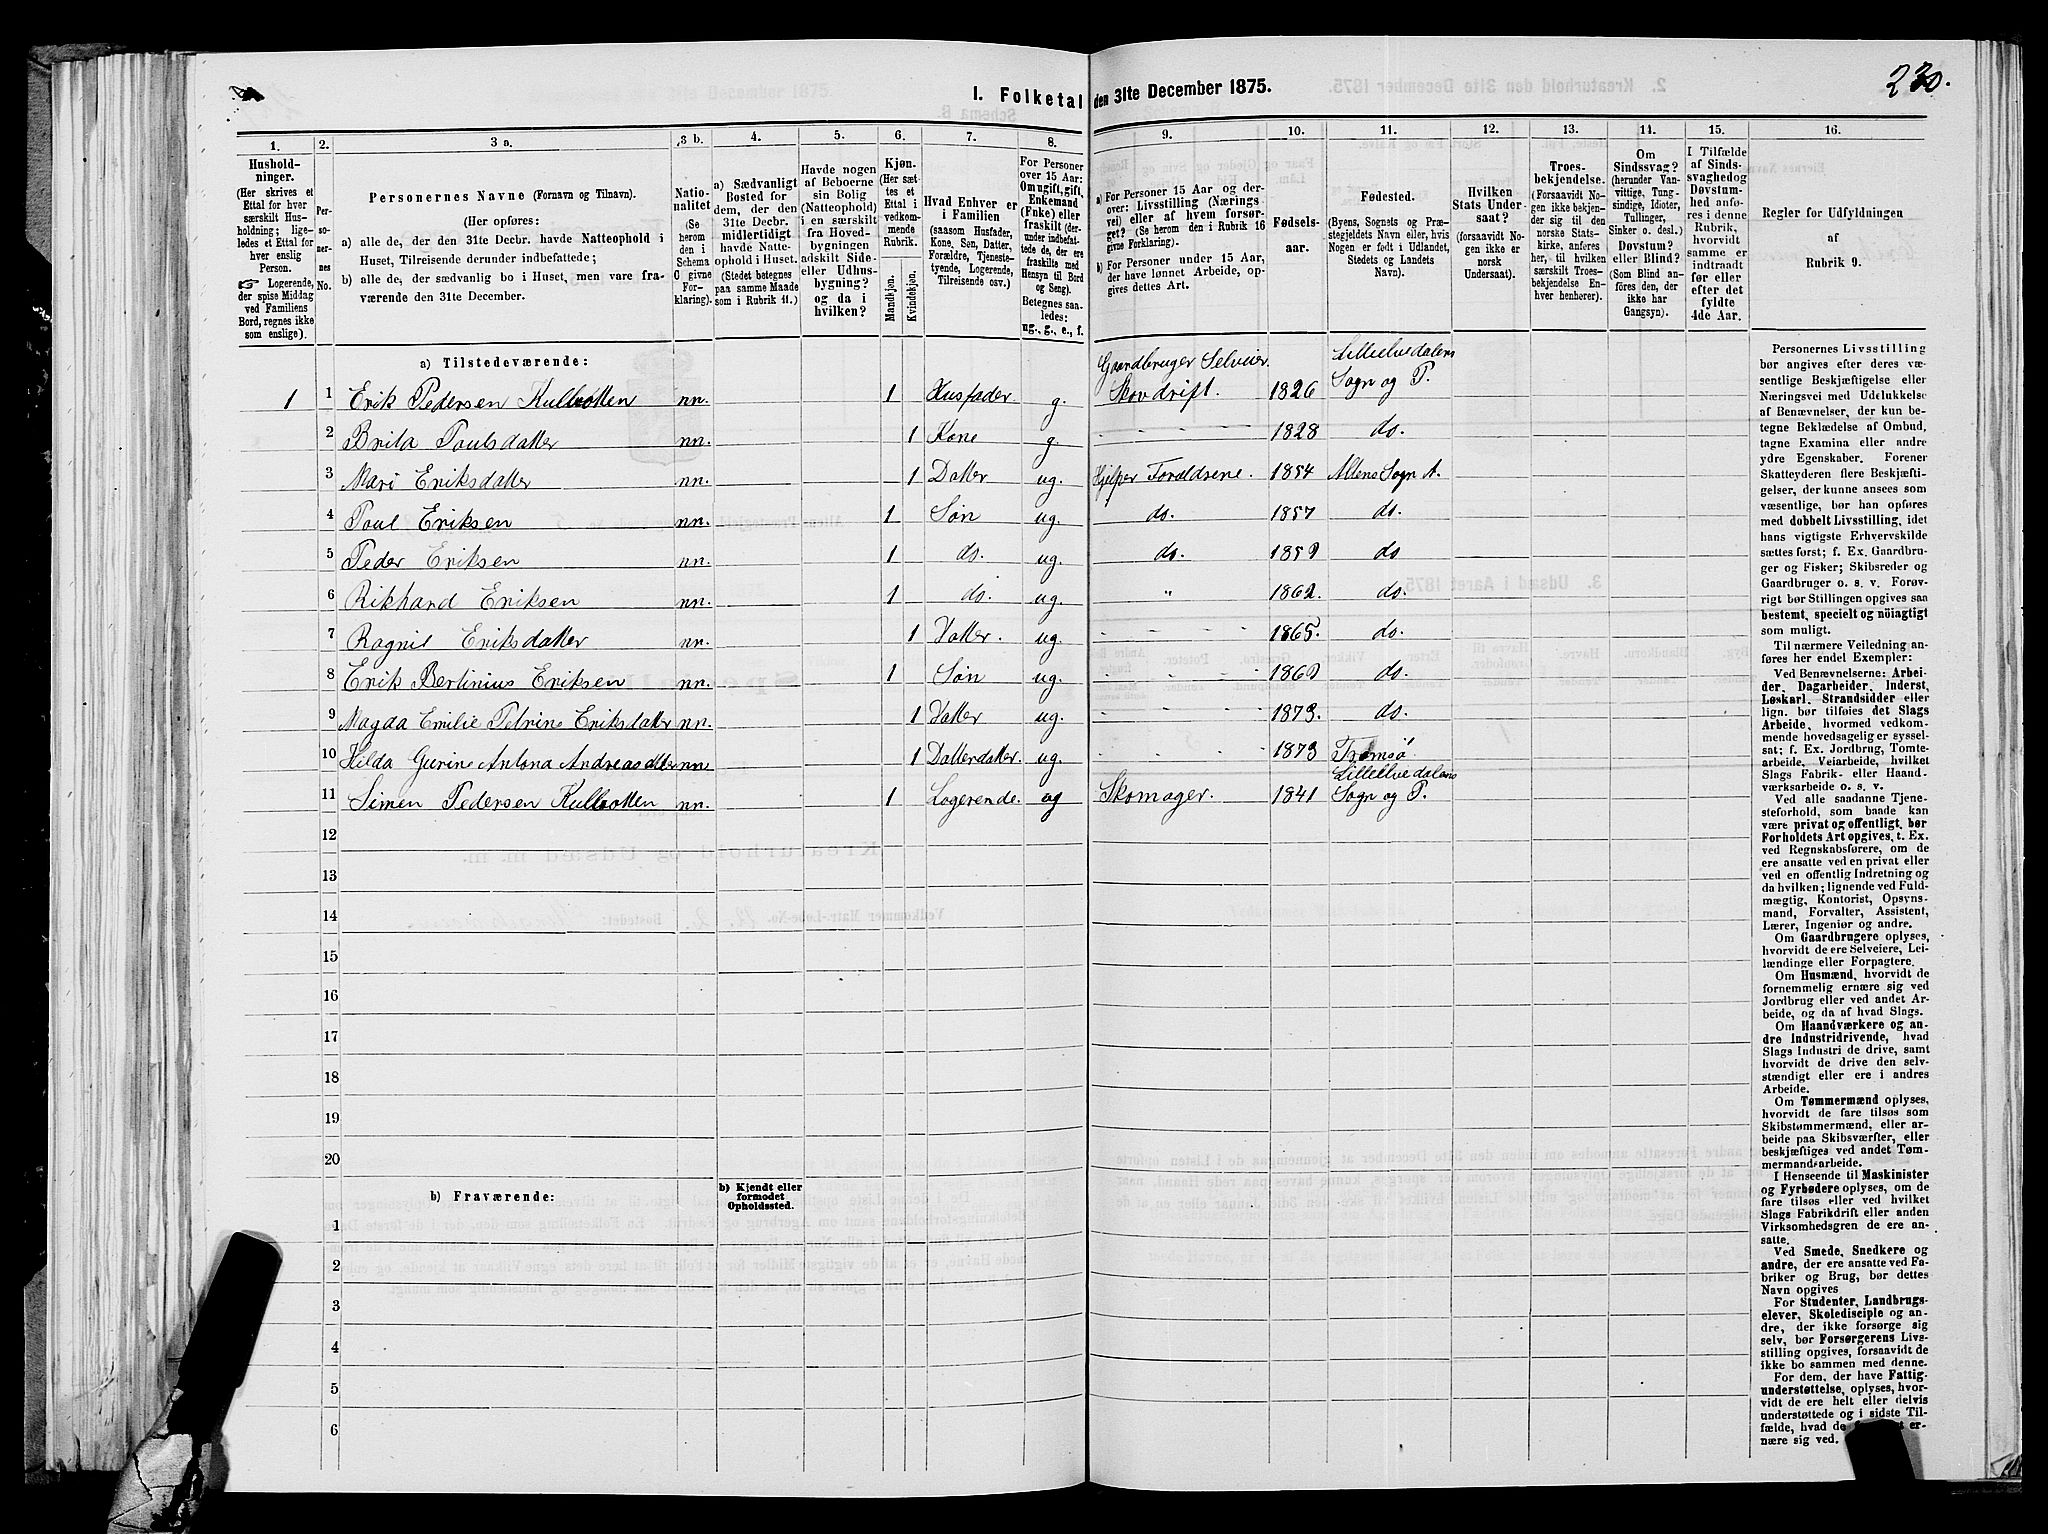 230.
I. Folketal den 31te December 1875.
1. 2. 3 a. 3 b. 4. 5. 6. 7. 8. 9. 10. 11. 12. 13. 14. 15. 16.
Hushold-
ninger.
(Her skrives et
Ettal for hver
særskilt Hus-
holdning; lige-
ledes et Ettal for
hver enslig
Person.
☞ Logerende,
der spise Middag
ved Familiens
Bord, regnes ikke
som enslige).
Per-
so-
ner-
nes
No.
Personernes Navne (Fornavn og Tilnavn).
(Her opføres:
a) alle de, der den 31te Decbr. havde Natteophold i
Huset, Tilreisende derunder indbefattede;
b) alle de, der sædvanlig bo i Huset, men vare fra-
værende den 31te December.
Natio-
nalitet
(Se
herom
den i
Schema
C givne
For-
klaring).
a) Sædvanligt
Bosted for
dem, der den
31te Decbr.
midlertidigt
havde Natte-
ophold i Huset.
(Stedet betegnes
paa samme Maade
som i Rubrik 11.)
Havde nogen
af Beboerne
sin Bolig
(Natteophold)
i en særskilt
fra Hoved-
bygningen
adskilt Side-
eller Udhus-
bygning?
og da i
hvilken?
Kjøn.
(Her sæt-
tes et
Ettal i
vedkom-
mende
Rubrik.
Mandkjøn.
Kvindekjøn.
Hvad Enhver er
i Familien
(saasom Husfader,
Kone, Søn, Datter,
Forældre, Tjeneste-
tyende, Logerende,
Tilreisende osv.)
For Personer
over 15 Aar:
Om ugift, gift,
Enkemand
(Enke) eller
fraskilt (der-
under indbefat-
tede de, der ere
fraskilte med
Hensyn til Bord
og Seng).
Betegnes saa-
ledes:
ug., g., e., f.
a) For Personer 15 Aar og der-
over: Livsstilling (Nærings
vei) eller af hvem forsør-
get? (Se herom den i Rubrik 16
givne Forklaring).
b) For Personer under 15 Aar,
der have lønnet Arbeide, op-
gives dettes Art.
Fødsels-
aar.
Fødested.
(Byens, Sognets og Præ-
stegjeldets Navn eller, hvis
Nogen er født i Udlandet,
Stedets og Landets
Navn).
Hvilken
Stats Under-
saat?
(forsaavidt No-
gen ikke er
norsk
Undersaat).
Troes-
bekjendelse.
(Forsaavidt No-
gen ikke bekjen-
der sig til den
norske Stats-
kirke, anføres
her, til hvilken
særskilt Troes-
bekjendelse En-
hver henhører).
Om
Sindssvag?
(herunder Van-
vittige, Tung-
sindige, Idioter,
Tullinger,
Sinker o. desl.)
Døvstum?
eller Blind?
(Som Blind an-
føres den, der
ikke har
Gangsyn).
I Tilfælde
af Sinds-
svaghed og
Døvstum-
hed anfø-
res i denne
Rubrik,
hvorvidt
samme er
indtraadt
før eller
efter det
fyldte
4de Aar.
Regler for Udfyldningen
af
Rubrik 9.
a) Tilstedeværende:
1 1 Erik Pedersen Kulbotten nn. 1 Husfader g. Gaardbruger Selveier. Skovdrift. 1826 Lilleelvedalens Sogn og P.
2 Brita Poulsdatter nn. 1 Kone g 1828 do.
3 Mari Eriksdatter nn. 1 Datter ug. Hjelper Foraldrene. 1854 Altens Sogn A.
4 Poul Eriksen nn. 1 Søn ug. do. 1857 do.
5 Peder Eriksen nn. 1 do. ug. do. 1859 do
6 Rikhard Eriksen nn. 1 do. ug. " 1862. do.
7 Ragnil Eriksdatter nn. 1 Datter. ug. 1865. do.
8 Erik Bertinius Eriksen nn. 1 Søn ug. 1869 do.
9 Magda Emilie Petrine Eriksdatter nn. 1 Datter ug. 1873. do.
10 Hilda Gurine Antona Andreasdatter nn. 1 Datterdatter. ug. 1873 Tromsø
11 Simen Pedersen Kulbotten nn. 1 Logerende. ug Skomager. 1841 Lilleelvedalens Sogn og P.
12
13
14
15
16
17
18
19
20
b) Fraværende:
b) Kjendt eller
formodet
Opholdssted.
1
2
3
4
5
6
Personernes Livsstilling
bør angives efter deres væ-
sentlige Beskjæftigelse eller
Næringsvei med Udelukkelse
af Benævnelser, der kun be-
tegne Beklædelse af Ombud,
tagne Examina eller andre
ydre Egenskaber. Forener
Skatteyderen flere Beskjæfti-
gelser, der kunne ansees som
væsentlige, bør han opføres
med dobbelt Livsstilling, idet
hans vigtigste Erhvervskilde
sættes først; f. Ex. Gaardbru-
ger og Fisker; Skibsreder og
Gaardbruger o. s. v. Forøv-
rigt bør Stillingen opgives saa
bestemt, specielt og nøiagtigt
som muligt.
Til nærmere Veiledning an-
føres her endel Exempler:
Ved Benævnelserne: Arbei-
der, Dagarbeider, Inderst,
Løskarl, Strandsidder eller
lign. bør tilføies det Slags
Arbeide, hvormed vedkom-
mende hovedsagelig er syssel-
sat; f. Ex. Jordbrug, Tomte-
arbeide, Veiarbeide, hvilket
Slags Fabrik- eller Haand-
værksarbeide o. s. v.
Ved alle saadanne Tjene-
steforhold, som baade kan
være privat og offentligt, bør
Forholdets Art opgives, t. Ex.
ved Regnskabsførere, om de
ere ansatte ved en privat eller
ved en offentlig Indretning og
da hvilken; lignende ved Fuld-
mægtig, Kontorist, Opsyns-
mand, Forvalter, Assistent,
Lærer, Ingeniør og andre.
Om Gaardbrugere oplyses,
hvorvidt de ere Selveiere, Lei-
lændinge eller Forpagtere.
Om Husmænd, hvorvidt de
fornemmelig ernære sig ved
Jordbrug eller ved andet Ar-
beide, og da af hvad Slags.
Om Haandværkere og an-
dre Industridrivende, hvad
Slags Industri de drive, samt
hvorvidt de drive den selv-
stændigt eller ere i andres
Arbeide.
Om Tømmermænd oplyses,
hvorvidt de fare tilsøs som
Skibstømmermænd, eller ar-
beide paa Skibsværfter, eller
beskjæftiges ved andet Tøm-
mermandsarbeide.
I Henseende til Maskinister
og Fyrbødere oplyses, om de
fare tilsøs eller ved hvilket
Slags Fabrikdrift eller anden
Virksomhedsgren de ere an-
satte.
Ved Smede, Snedkere og
andre, der ere ansatte ved Fa-
briker og Brug, bør dettes
Navn opgives
For Studenter, Landbrugs-
elever, Skoledisciple og an-
dre, der ikke forsørge sig
selv, bør Forsørgerens Livs-
stilling opgives, forsaavidt de
ikke bo sammen med denne.
For dem, der have Fattig-
understøttelse, oplyses, hvor-
vidt de ere helt eller delvis
understøttede og i sidste Til-
fælde, hvad de er-
nære sig ved.